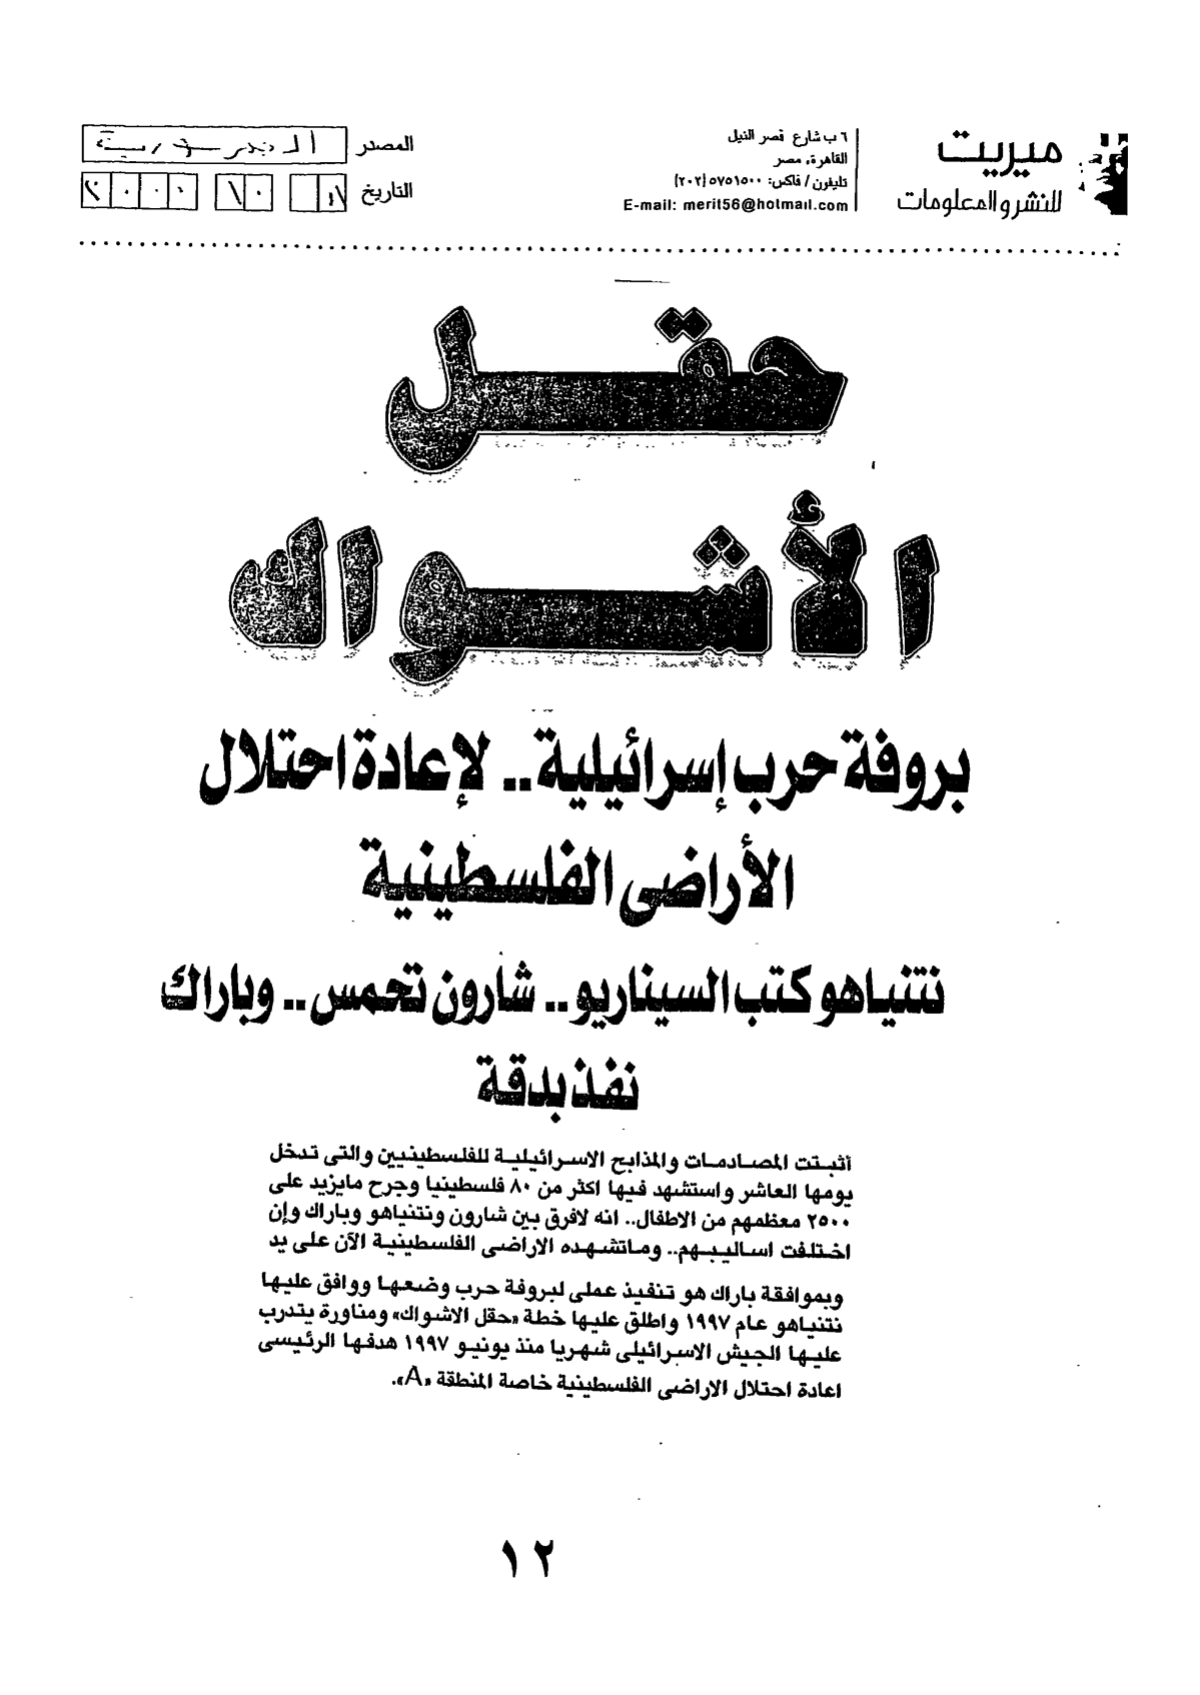 ميريت
للنشر والمعلومات
٦ ب شارع قصر النيل
القاهرة، مصر
تليفون / فاكس: ٥٧٥١٥٠٠ (٢٠٢)
E-mail: merit56@hotmail.com
المصدر
التاريخ ١٠ ٢٠٠٠
حقل
الأشواك
بروفة حرب إسرائيلية.. لإعادة احتلال
الأراضى الفلسطينية
نتنياهو كتب السيناريو.. شارون تحمس.. وباراك
نفذ بدقة
أثبتت المصادمات والمذابح الاسرائيلية للفلسطينيين والتى تدخل
يومها العاشر واستشهد فيها اكثر من ٨٠ فلسطينيا وجرح مايزيد على
٢٥٠٠ معظمهم من الاطفال.. انه لافرق بين شارون ونتنياهو وباراك وإن
اختلفت اساليبهم.. وماتشهده الاراضى الفلسطينية الآن على يد
وبموافقة باراك هو تنفيذ عملى لبروفة حرب وضعها ووافق عليها
نتنياهو عام ١٩٩٧ واطلق عليها خطة «حقل الاشواك» ومناورة يتدرب
عليها الجيش الاسرائيلى شهريا منذ يونيو ١٩٩٧ هدفها الرئيسى
اعادة احتلال الاراضى الفلسطينية خاصة المنطقة «A».
١٢